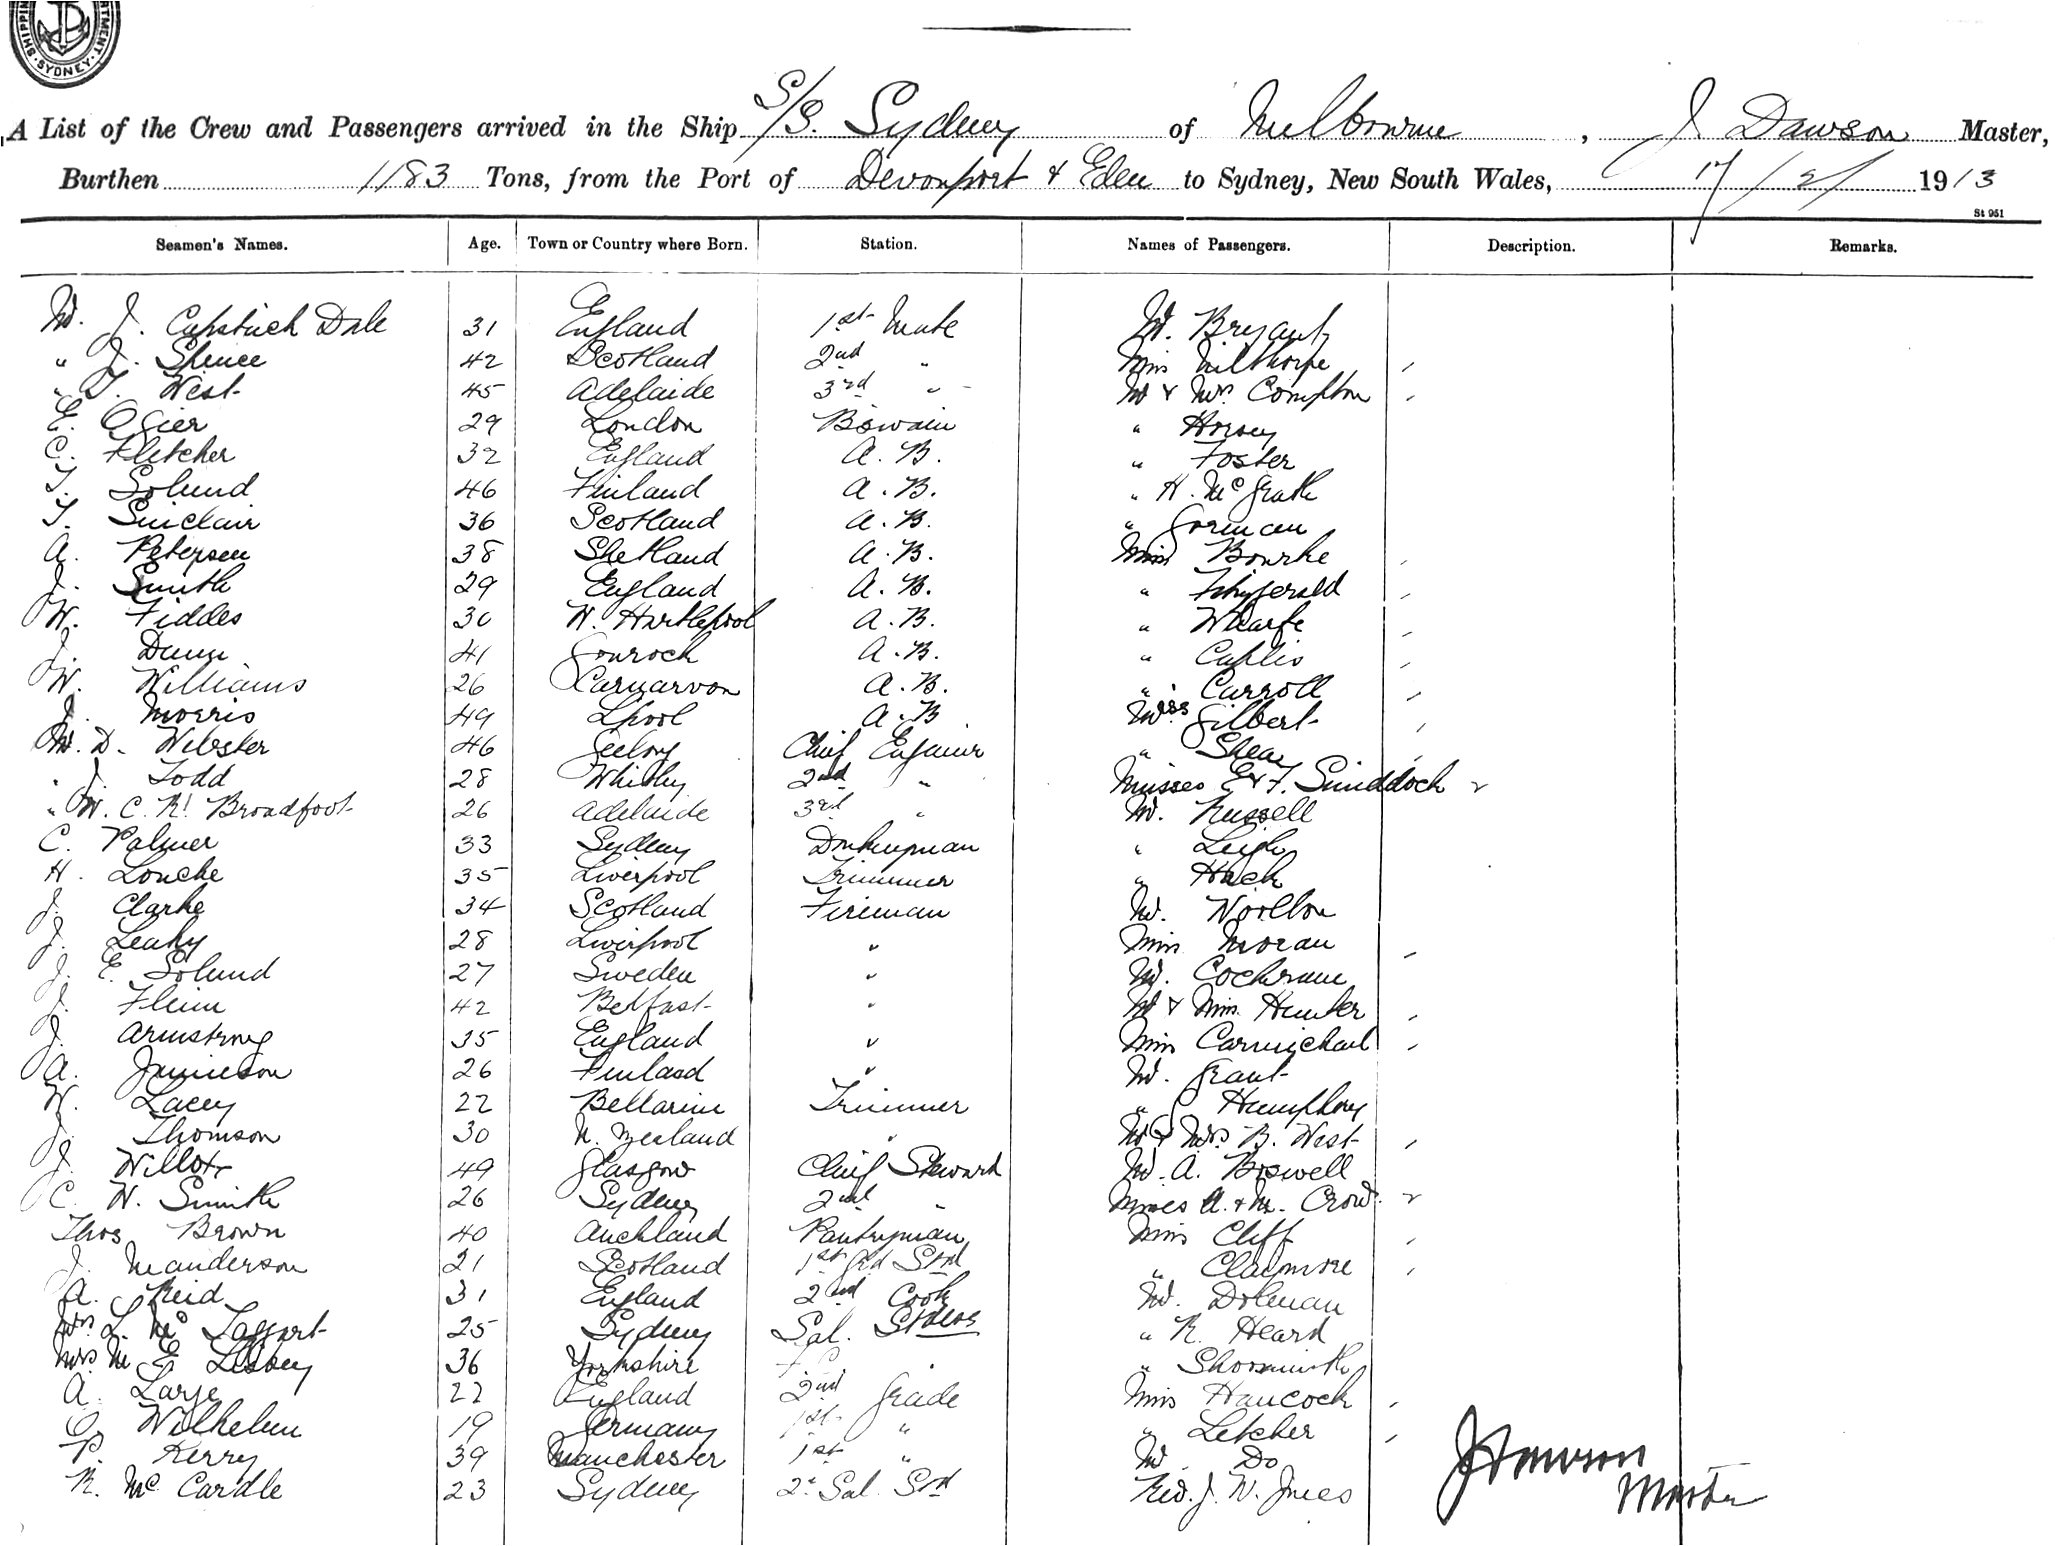 SHIPPIN RTMENT. SYDNEY
A List of the Crew and Passengers arrived in the Ship S/S. Sydney of Melbourne, J. Dawson Master,
Burthen 1183 Tons, from the Port of Devonport & Eden to Sydney, New South Wales, 17/2/ 1913
St 951
Seamen's Names. Age. Town or Country where Born. Station. Names of Passengers. Description. Remarks.
Mr. J. Capstick Dale 31 England 1st Mate Mr. Bryant
" J. Spence 42 Scotland 2nd " Miss Milthorpe
" T. West 45 Adelaide 3rd " Mr & Mrs Compton
E. Ogier 29 London Boswain " Horsey
C. Fletcher 32 England A. B. " Foster
T. Solund 46 Finland A. B. " H. McGrath
T. Sinclair 36 Scotland A. B. " Gorman
A. Petersen 38 Shetland A. B. Miss Bourke
J. Smith 29 England A. B. " Fitzgerald
W. Fiddes 30 W. Hartlepool A. B. " Wharfe
J. Dunn 41 Gourock A. B. " Caplis
W. Williams 26 Carnarvon A. B. " Carroll
J. Morris 49 Lpool A. B Gilbert
Mr. D. Webster 46 Geelong Chief Engineer " Shea
" J. Todd 28 Whitby 2nd " Misses E & F. Smiddock
" W. C. R. Broadfoot 26 Adelaide 3rd " Mr. Russell
C. Palmer 33 Sydney Donkeyman " Leigh
H. Louche 35 Liverpool Trimmer " Hack
J. Clarke 34 Scotland Fireman Mr. Woollon
J. Leahy 28 Liverpool " Miss Moran
J. E. Solund 27 Sweden " Mr. Cochrane
J. Flinn 42 Belfast " Mr & Miss Hunter
J. Armstrong 35 England " Miss Carmichael
A. Jamieson 26 Finland " Mr. Grant
W. Lacey 22 Bellarine Trimmer " Humphrey
J. Thomson 30 N. Zealand " Mr & Mrs B. West
J. Willox 49 Glasgow Chief Steward Mr. A. Boswell
C. W. Smith 26 Sydney 2nd " Misses A. & M. Crow
Thos Brown 40 Auckland Pantryman Miss Cliff
J. Manderson 21 Scotland 1st Grd Strd " Claymore
A. Reid 31 England 2nd Cook Mr. Dolman
Mrs L. McTaggart 25 Sydney Sal. Stdess " R. Heard
Mrs M. E. Libbey 36 Yorkshire F.C. " Shoosmith
A. Large 22 England 2nd Grade Miss Hancock
O. Wilhelm 19 Germany 1st " " Letcher
P. Kerry 39 Manchester 1st " Mr. Do
R. McCardle 23 Sydney 2d Sal. Strd Rev. J. W. Jnees
J Dawson
Master